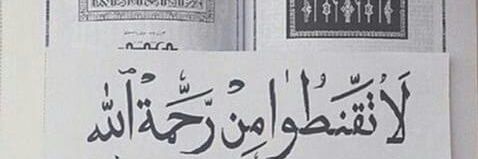 لَا تَقْنَطُوا مِنْ رَّحْمَةِ ٱللَّهِ